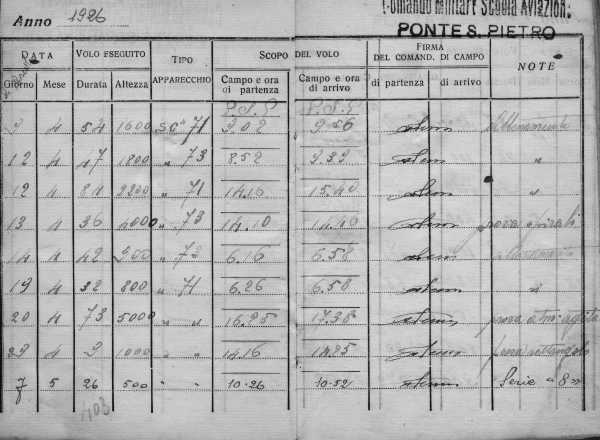 Anno 1926
Comando Militare Scuola Aviazione
PONTE S. PIETRO
DATA VOLO ESEGUITO TIPO APPARECCHIO SCOPO DEL VOLO FIRMA DEL COMAND. DI CAMPO NOTE
Giorno Mese Durata Altezza Campo e ora di partenza Campo e ora di arrivo di partenza di arrivo
P.S.P. P.S.P.
9 4 54 1600 71 9.02 9.56 Allenamento
12 4 47 1800 " 73 8.52 9.39 "
12 4 84 2200 " 71 14.16 15.40 "
13 4 36 4000 " 73 14.10 14.46 prova spirali
14 4 42 900 " 73 6.16 6.58 allenamento
19 4 32 800 " 71 6.26 6.58 "
20 4 73 5000 " " 16.25 17.38 prova
29 4 9 1000 " " 14.16 14.25 prova rettangolo
7 5 26 500 " " 10-26 10-52 Serie "8"
403